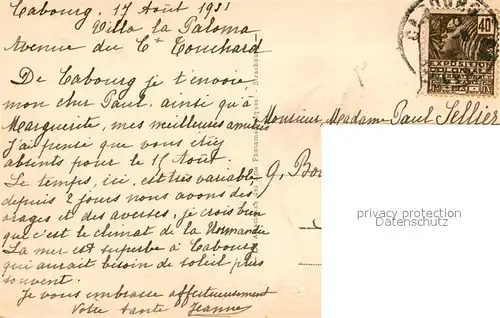 Cabourg. 17 Août 1931
Villa la Paloma
Avenue du Ct Touchard
De Cabourg je t'envoie
mon cher Paul, ainsi qu'à
Marguerite, mes meilleures amitiés
J'ai pensé que vous étiez
absents pour le 15 Août.
Le temps, ici, est très variable
depuis 2 jours nous avons des
orages et des averses, je crois bien
que c'est le climat de la Normandie
La mer est superbe à Cabourg
qui aurait besoin de soleil plus
souvent.
Je vous embrasse affectueusement
Votre tante Jeanne
Monsieur, Madam Paul Sellier
9.
40
EXPOSITION
privacy protection
www.oldthing.de